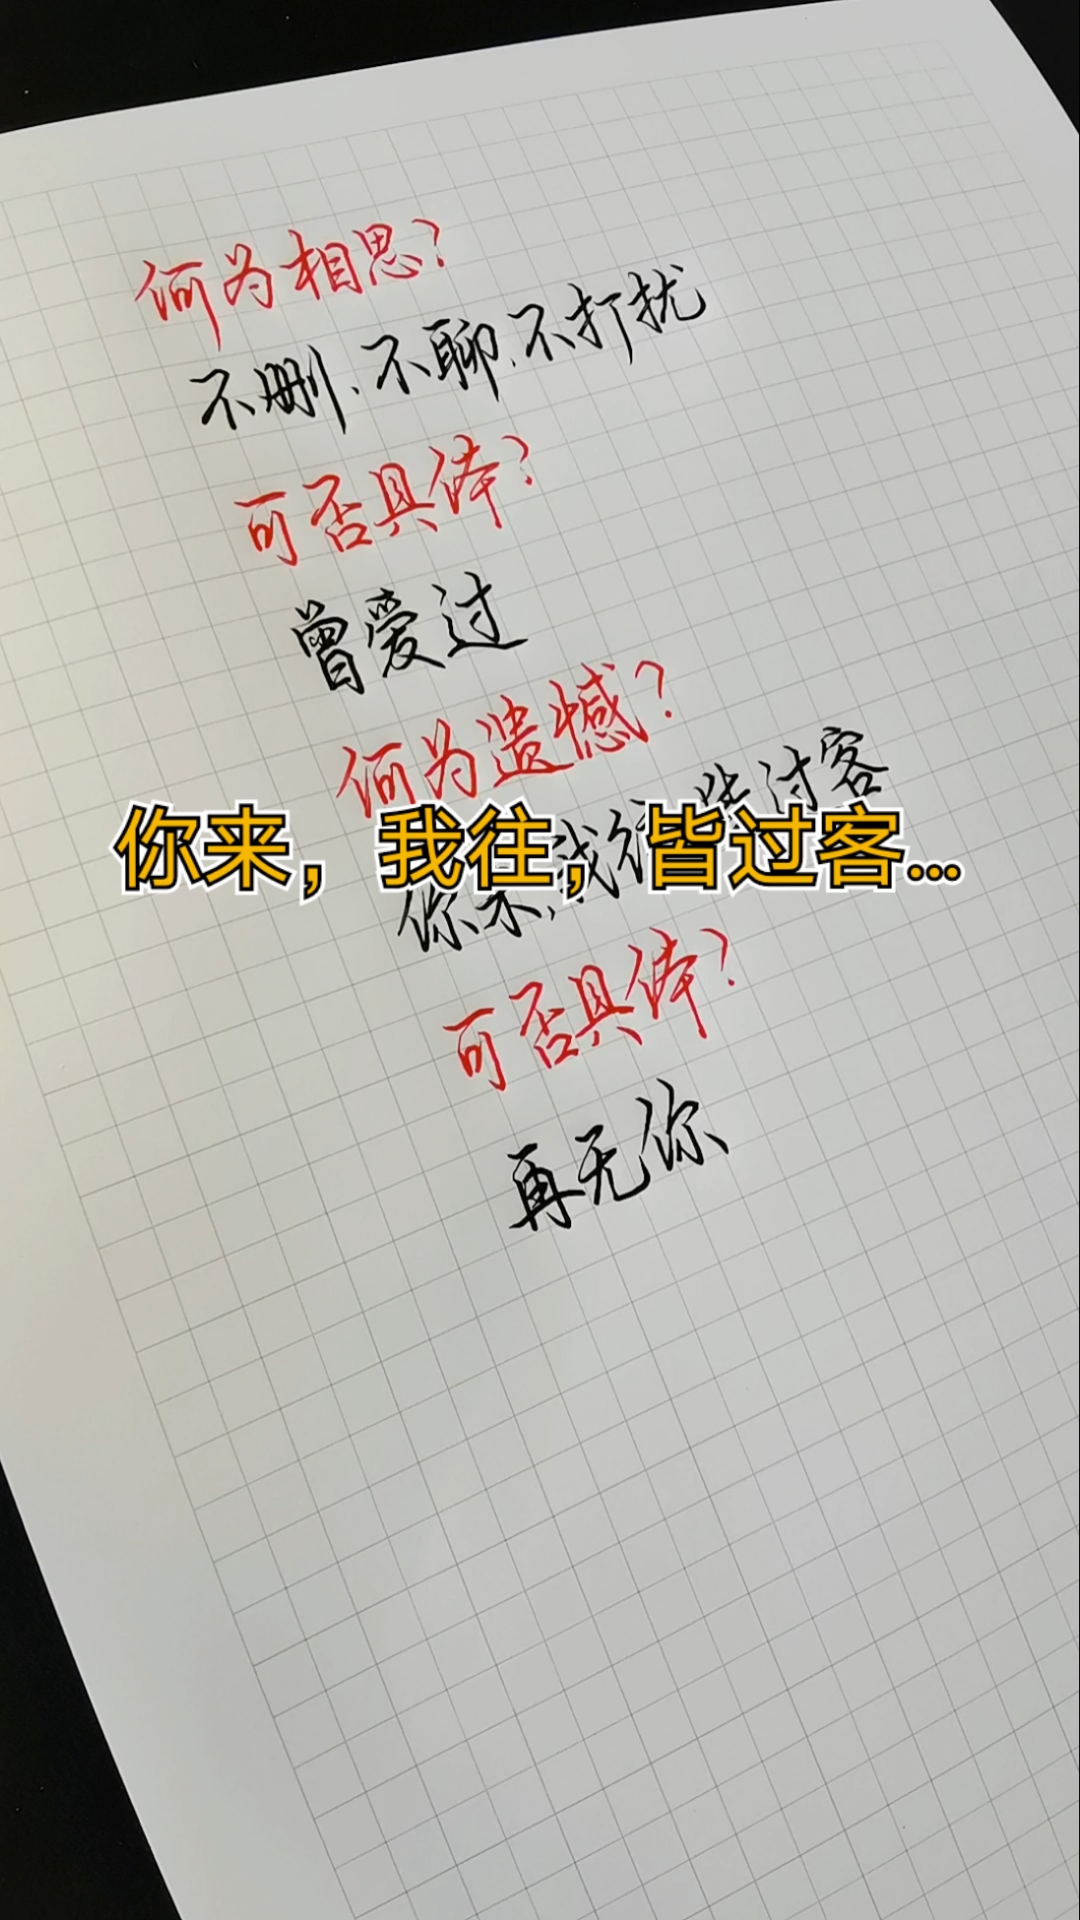 何为相思？
不删、不聊、不打扰
可否具体？
曾爱过
何为遗憾？
你来，我往，皆过客
你来，我往，皆过客...
可否具体？
再无你